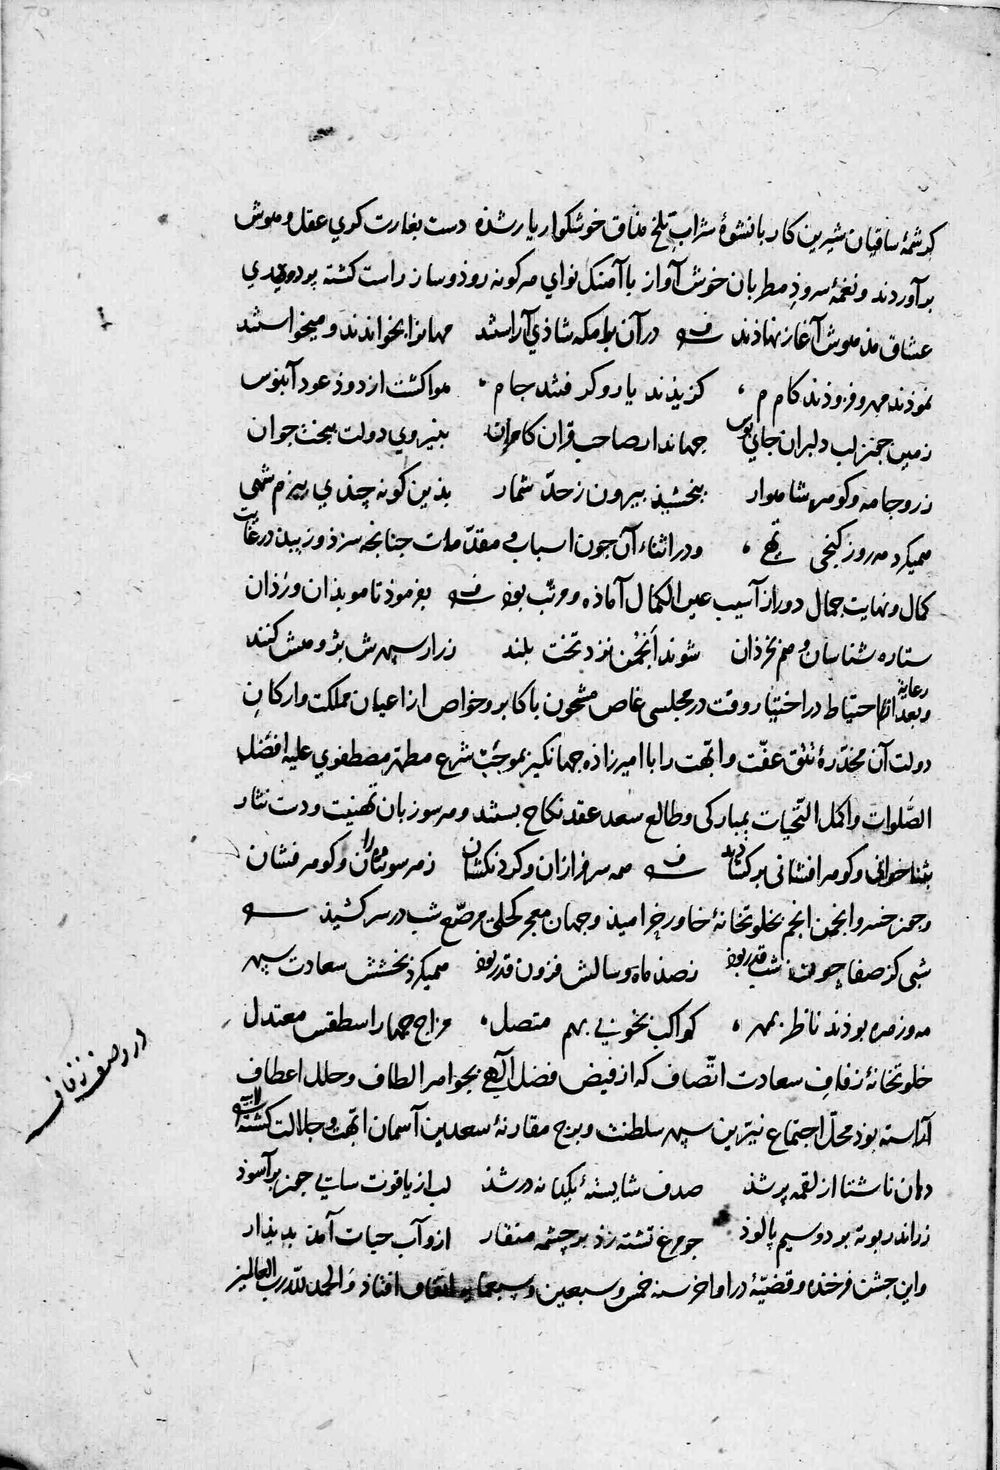 کرشمهٔ ساقیان شیرین کار با نشوهٔ شراب تلخ مذاق خوشکوار یار شذه دست بغارت کوی عقل و هوش
بر آوردند و نغمهٔ سروذ مطربان خوش آواز با آهنک نوای هر کونه روذ و ساز راست کشته پرده دری
عشاق مدهوش آغاز نهاذند در آن بزمکه شاذی آراستند مهانرا بخواندند و میخواستند
نموذند مهر و فزوذند کام کزیذند یار و کرفتند جام هوا کشت از دوذ عود آبنوس
زمین جمن لب دلبران جای بوس جهاندار صاحب قران کامران بنیروی دولت ببخت جوان
زر و جامه و کوهر شاهوار ببخشیذ بیرون ز حدّ شمار بذین کونه جندی ببزم شهی
همیکرد هر روز کنجی تهی و در اثناء آن جون اسباب و مقدّمات جنانجه سزذ و زیبذ در غایت
کمال و نهایت جمال دور از آسیب عین الکمال آماذه و مرتب بوذ بفرموذ تا موبذان و رذان
ستاره شناسان و هم بخرذان شوند انجمن نزد تخت بلند ز راز سپهرش پژوهش کنند
و بعد از رعایة احتیاط در اختیار وقت در مجلسی غاص مشحون باکابر و خواص از اعیان مملکت و ارکان
دولت آن مخدّرهٔ تتق عفّت و ابّهت را با امیرزاذه جهانکیر بموجب شرع مطهّر مصطفوی علیه افضل
الصّلوات و اکمل التّحیات بمبارکی و طالع سعد عقد نکاح بستند و هر سو زبان تهنیت و دست نثار
بثنا خوانی و کوهر افشانی برکشاذند همه سرفرازان و کردنکشان ز هر سو ثنا خوان و کوهر فشان
و جون خسرو انجمن انجم بخلوتخانهٔ خاور خرامیذ و جهان معجر کحلی مرصّع شب در سر کشیذ
شبی کز صفا جون شب قدر بوذ ز صذ ماه و سالش فزون قدر بوذ همیکرد بخشش سعادت سپهر
مه و زهره بوذند ناظر بمهر کواکب بخوبی بهم متصل مزاج جهار اسطقس معتدل
خلوتخانهٔ زفاف سعادت اتّصاف که از فیض فضل آلهی بجواهر الطاف و حلل اعطاف
آراسته بوذ محلّ اجتماع نیّرین سپهر سلطنت و برج مقارنهٔ سعدین آسمان ابّهت و جلالت کشته
دهان ناشتا از لقمه پر شذ صدف شایستهٔ یکدانه در شذ لب از یاقوت ساقی جمن بر آسوذ
زر اندر بوته بر دو سیم پالوذ جو مرغ تشنه زد بر چشمه منقار ازو آب حیات آمد بدیذار
و این جشن فرخنده و قضیّه در اواخر سنه خمس و سبعین و سبعمایه اتفاق افتاذ والحمد لله رب العالمین
در وصف زفاف